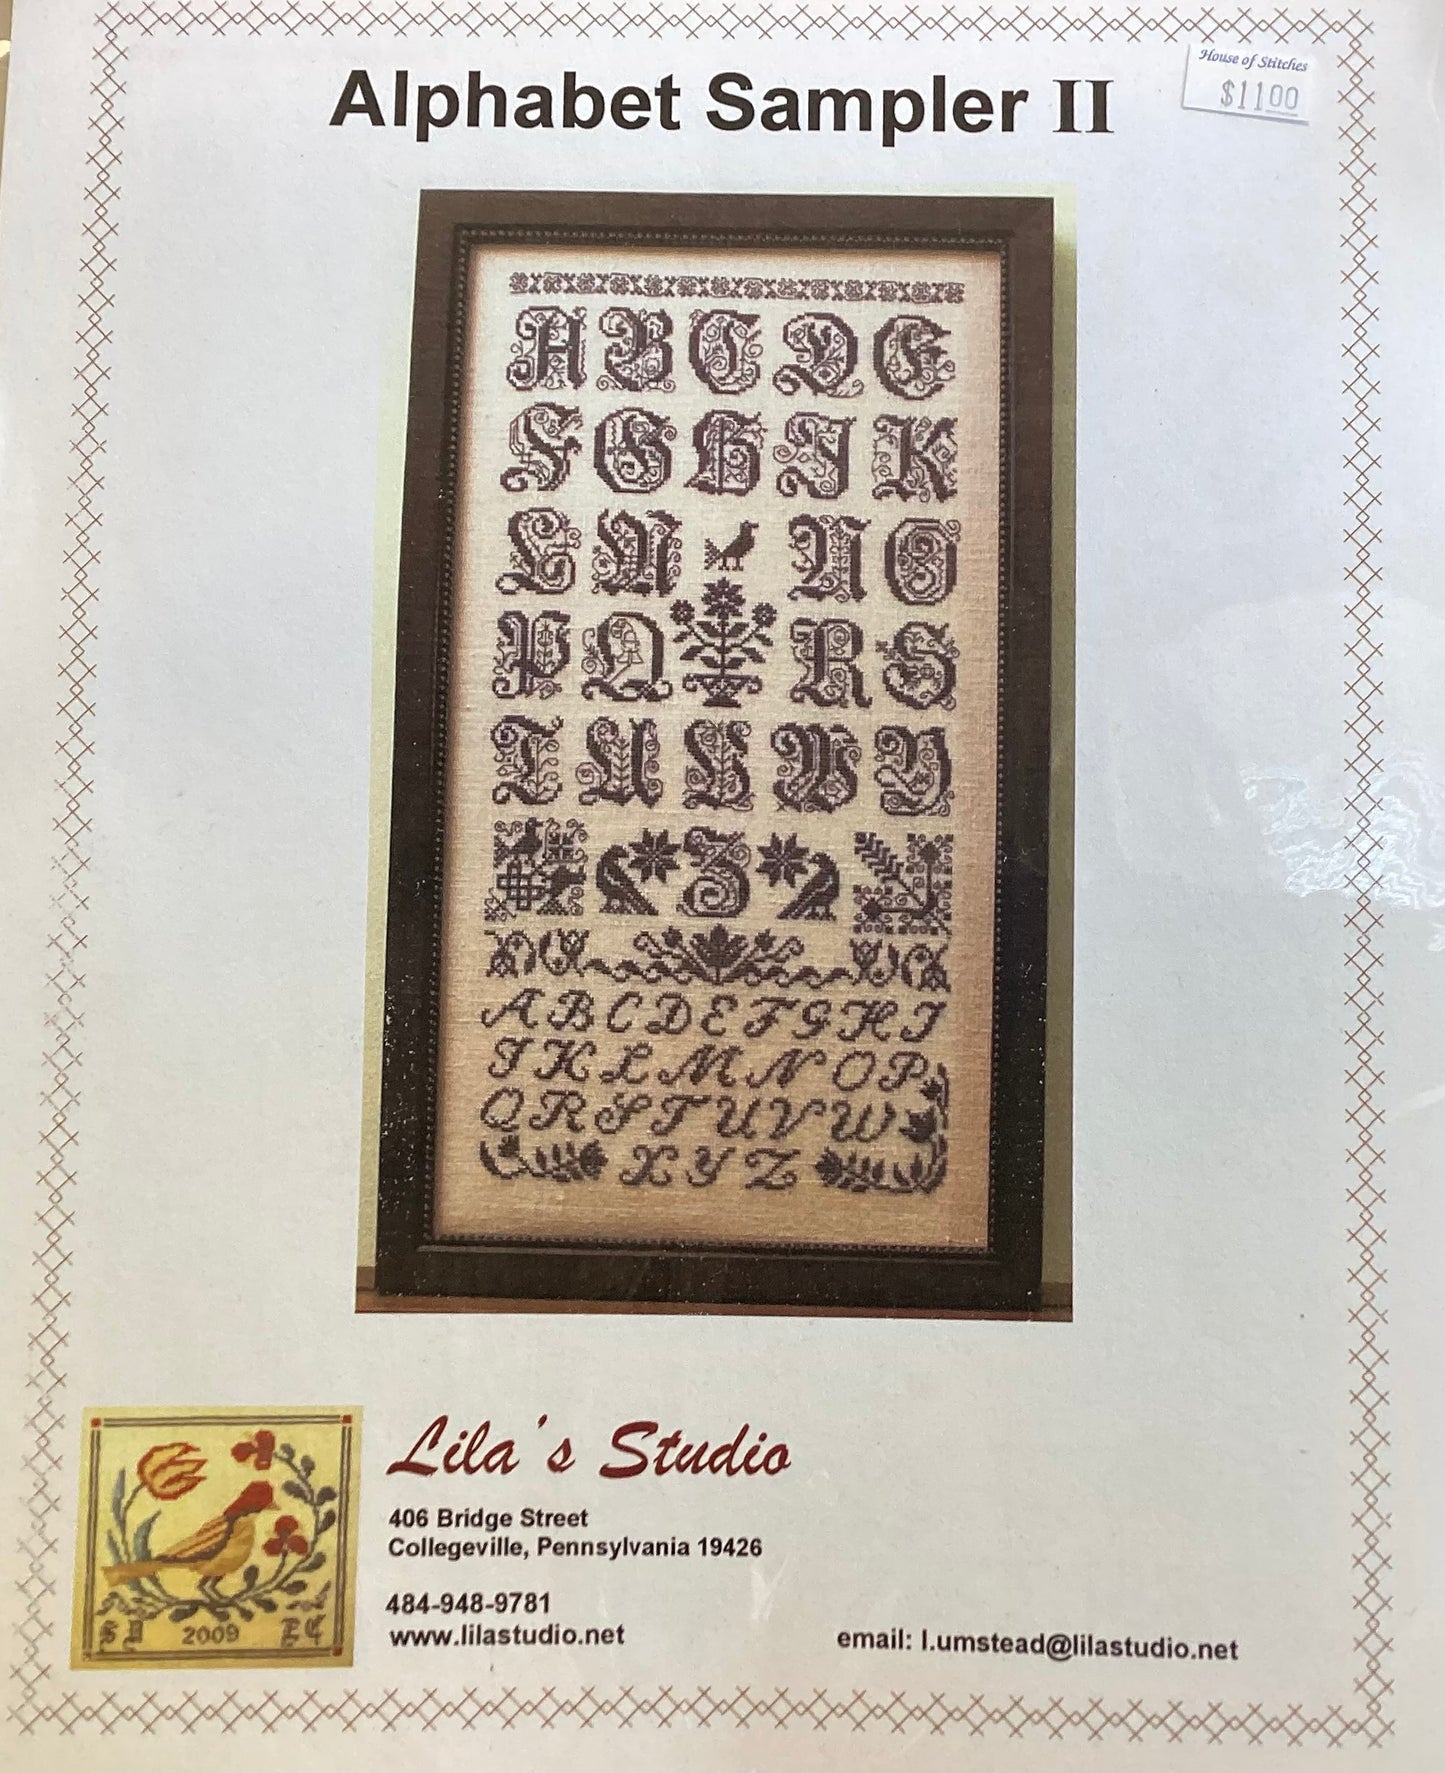 House of Stitches
$11.00
Alphabet Sampler II
A B C D E
F G H I K
L M N O
P Q R S
T U V W Y
Z
A B C D E F G H I
J K L M N O P
Q R S T U V W
X Y Z
Lila's Studio
406 Bridge Street
Collegeville, Pennsylvania 19426
484-948-9781
www.lilastudio.net
email: l.umstead@lilastudio.net
2009